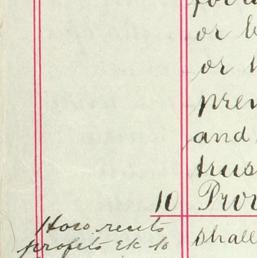 or
or
and
trus
10 Prov
How rents
profits &c to
shall